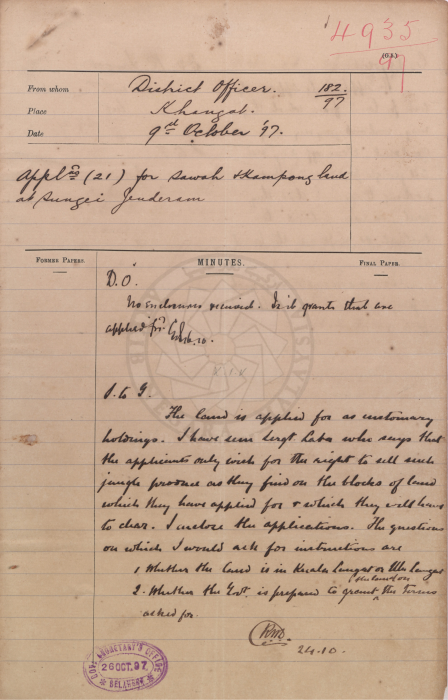 4935
97
(G.)
From whom District Officer. 182
97
Place Khangat.
Date 9th October '97.
Applns (21) for sawah & kampong land
at Sungei Jenderam
FORMER PAPERS. MINUTES. FINAL PAPER.
D.O.
No enclosures received. Is it grants that are
applied for.
S. to G.
The land is applied for as customary
holdings. I have seen Sergt Laba who says that
the applicants only wish for the right to sell such
jungle produce as they find on the blocks of land
which they have applied for & which they will have
to clear. I enclose the applications. The questions
on which I would ask for instructions are
1 Whether the land is in Kuala Langat or Ulu Langat
2. Whether the Govt. is prepared to grant the terms
asked for.
24.10.
GOVT. SECRETARY'S OFFICE
26 OCT. 97
SELANGOR